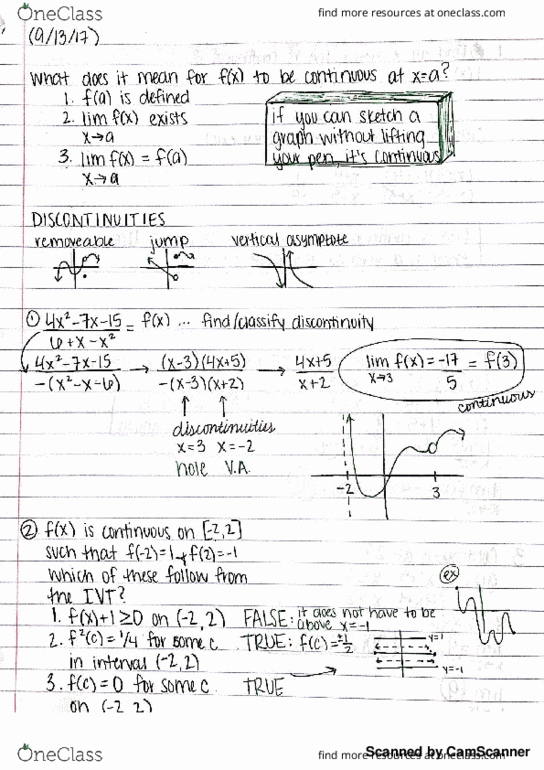 OneClass
find more resources at oneclass.com
(9/13/17)
What does it mean for f(x) to be continuous at x=a?
1. f(a) is defined
2. lim f(x) exists
x→a
3. lim f(x) = f(a)
x→a
if you can sketch a
graph without lifting
your pen, it's continuous
DISCONTINUITIES
removeable jump vertical asymptote
① 4x²-7x-15 = f(x) ... find/classify discontinuity
6+x-x²
4x²-7x-15 → (x-3)(4x+5) → 4x+5
-(x²-x-6) -(x-3)(x+2) x+2
lim f(x) = -17 = f(3)
x→3 5
continuous
discontinuities
x=3 x=-2
hole V.A.
-2 3
② f(x) is continuous on [-2,2]
such that f(-2)=1 + f(2)=-1
which of these follow from
the IVT?
ex
1. f(x)+1≥0 on (-2,2) FALSE: it does not have to be
above x=-1
2. f²(c)=1/4 for some c TRUE: f(c)=±1/2
in interval (-2,2)
y=1
y=-1
3. f(c)=0 for some c TRUE
on (-2 2)
OneClass
find more resources at oneclass.com
Scanned by CamScanner